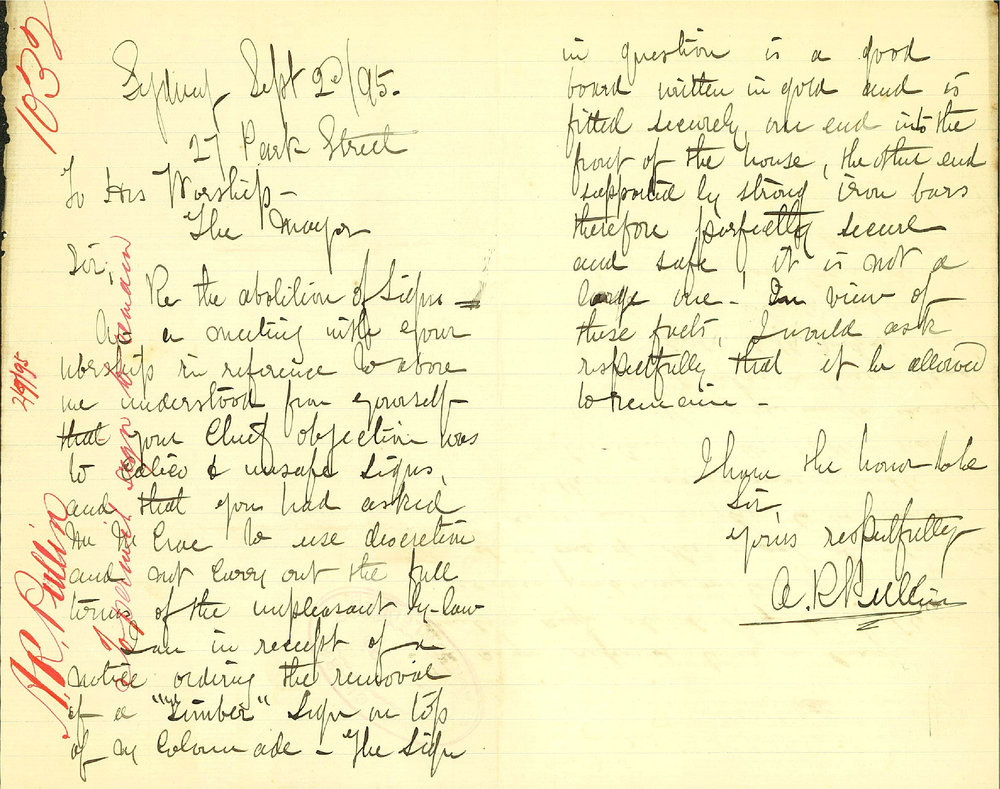 1032
2/9/95
A.R. Pullin
To permit sign to remain
Sydney Sept 2d/95.
27 Park Street
To His Worship –
The Mayor
Sir,
Re the abolition of Signs –
At a meeting with your
worship in reference to above
we understood from yourself
that your Chief objection was
to Calico & unsafe Signs,
and that you had asked
Mr McCrae to use discretion
and not Carry out the full
terms of the unpleasant by-law
I am in receipt of a
notice ordering the removal
of a "Timber" Sign on top
of my Colonnade – The Sign
in question is a good
board written in gold and is
fitted securely, one end into the
front of the house, the other end
supported by strong iron bars
therefore perfectly secure
and safe, it is not a
large one – In view of
these facts, I would ask
respectfully that it be allowed
to remain –
I have the honor to be
Sir,
yours respectfully
A. R. Pullin